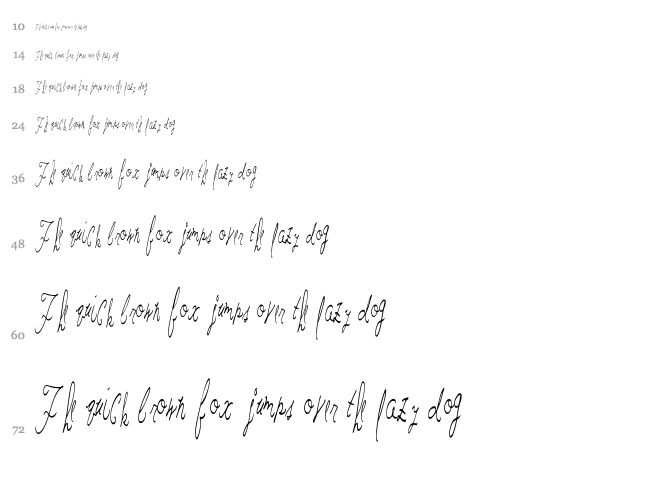 10 The quick brown fox jumps over the lazy dog
14 The quick brown fox jumps over the lazy dog
18 The quick brown fox jumps over the lazy dog
24 The quick brown fox jumps over the lazy dog
36 The quick brown fox jumps over the lazy dog
48 The quick brown fox jumps over the lazy dog
60 The quick brown fox jumps over the lazy dog
72 The quick brown fox jumps over the lazy dog